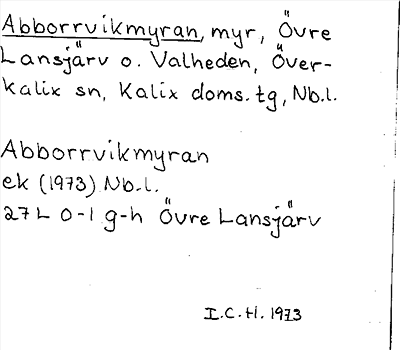 Abborrvikmyran, myr, Övre
Lansjärv o. Valheden, Över-
kalix sn, Kalix doms. tg, Nb.l.
Abborrvikmyran
ek (1973) Nb.l.
27L 0-1 g-h Övre Lansjärv
I.C.H. 1973